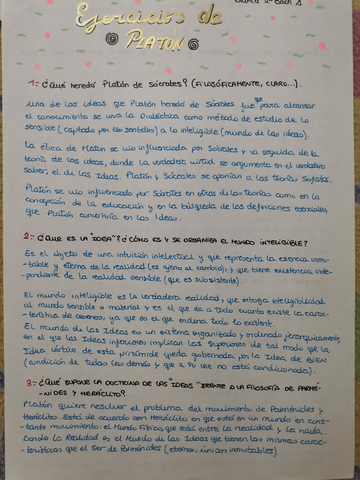 2º Bach A
Ejercicios de
PLATÓN
1.- ¿Qué heredó Platón de Sócrates? (FILOSÓFICAMENTE, CLARO...).
Una de las ideas que Platón heredó de Sócrates fue que para alcanzar
el conocimiento se usa la Dialéctica como método de estudio de lo
sensible (captado por los sentidos) a lo inteligible (mundo de las ideas).
La ética de Platón se vio influenciada por Sócrates y la seguida de la
teoría de las ideas, donde la verdadera virtud se argumenta en el verdadero
saber, el de las Ideas. Platón y Sócrates se oponían a las teorías Sofistas.
Platón se vio influenciado por Sócrates en otras de las teorías como en la
concepción de la educación y en la búsqueda de las definiciones esenciales,
que Platón convertiría en las Ideas.
2.- ¿QUE ES LA "IDEA"? ¿CÓMO ES Y SE ORGANIZA EL MUNDO INTELIGIBLE?
Es el objeto de una intuición intelectual y que representa la esencia inmu-
table y eterna de la realidad (es ajeno al cambio), y que tiene existencia inde-
pendiente de la realidad sensible (que es subsistente).
El mundo inteligible es la verdadera realidad, que otorga inteligibilidad
al mundo sensible o material y es el que da a todo cuanto existe la carac-
terística de cosmos, ya que es el que ordena todo lo existente.
El mundo de las Ideas es un sistema organizado y ordenado jerárquicamente,
en el que las Ideas inferiores implican las superiores de tal modo que la
Idea vértice de esta pirámide queda gobernada por la Idea de BIEN
(condición de todas las demás y que a su vez no está condicionada).
3.- ¿QUÉ SUPONE LA DOCTRINA DE LAS "IDEAS" FRENTE A LA FILOSOFÍA DE PARMÉ-
NIDES Y HERÁCLITO?
Platón quiere resolver el problema del movimiento de Parménides y
Heráclito. Está de acuerdo con Heráclito en que está en un mundo en cons-
tante movimiento: el Mundo Físico, que está entre la realidad y la nada.
Donde la Realidad es el Mundo de las Ideas que tienen las mismas carac-
terísticas que el Ser de Parménides (eternos, únicos inmutables).